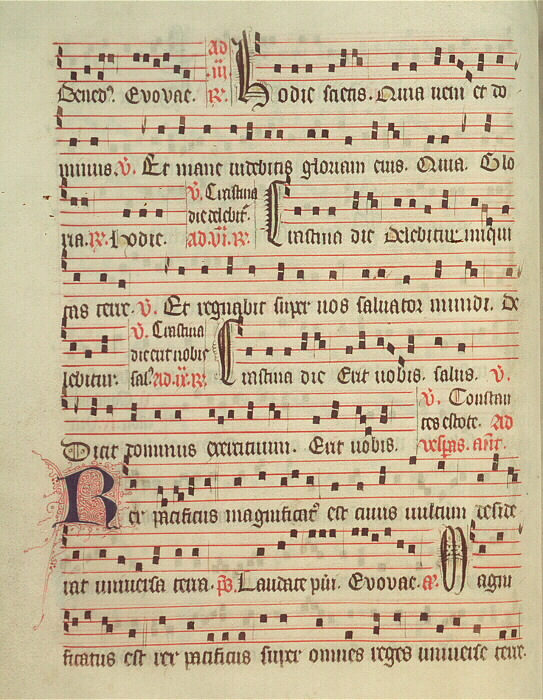 Bened⁹. Evovae. ad iii R. Hodie scietis. Quia veni et do
minus. V. Et mane videbitis gloriam eius. Quia. Glo
ria. R. Hodie. V. Crastina die delebit². ad. VI. R. Crastina die Delebitur iniqui
tas terre. V. Et regnabit super vos salvator mundi. De
lebitur. V. Crastina die erit vobis sal⁹. ad. ix. R. Crastina die Erit vobis. salus. V.
Dicit dominus exercituum. Erit vobis. V. Constan tes estote. Ad vesperas. ant.
Rex pacificus magnificat⁹ est cuius vultum deside
rat universa terra. ps. Laudate pueri. Evovae. a. Magni
ficatus est rex pacificus super omnes reges universe terre.